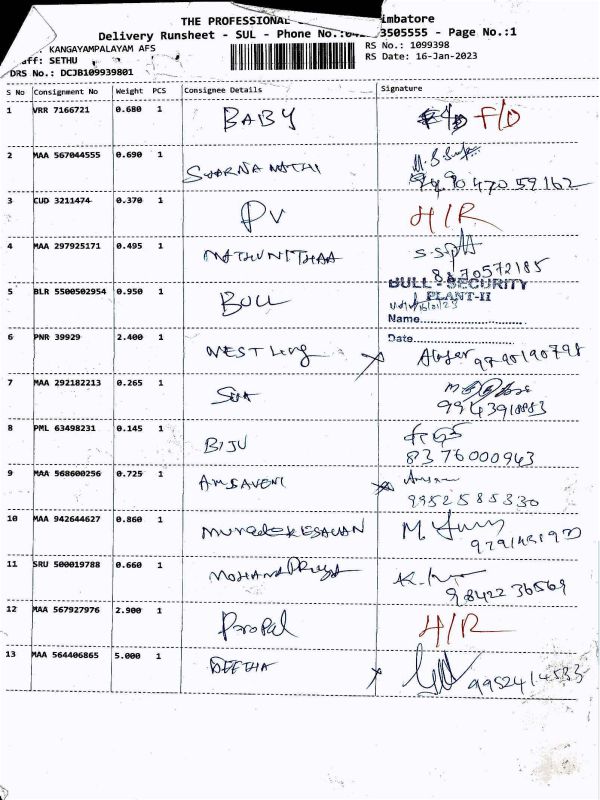 THE PROFESSIONAL
imbatore
Delivery Runsheet - SUL - Phone No.:
3505555 - Page No.:1
KANGAYAMPALAYAM AFS
RS No.: 1099398
aff: SETHU
RS Date: 16-Jan-2023
DRS No.: DCJB109939801
S No Consignment No Weight PCS Consignee Details Signature
1 VRR 7166721 0.680 1 BABY F/D
2 MAA 567044555 0.690 1
3 CUD 3211474 0.370 1 PV H/R
4 MAA 297925171 0.495 1 MATHUNITHAA
8170572185
5 BLR 5500502954 0.950 1 BULL BULL - SECURITY
PLANT-II
Name
6 PNR 39929 2.400 1 Date
9790190798
7 MAA 292182213 0.265 1
8 PML 63498231 0.145 1 BIJU
8376000943
9 MAA 568600256 0.725 1 AMSAVENI
9952585330
10 MAA 942644627 0.860 1
11 SRU 500019788 0.660 1 MOHANAPRIYA
9842236569
12 MAA 567927976 2.900 1 H/R
13 MAA 564406865 5.000 1 GEETHA
9952414533